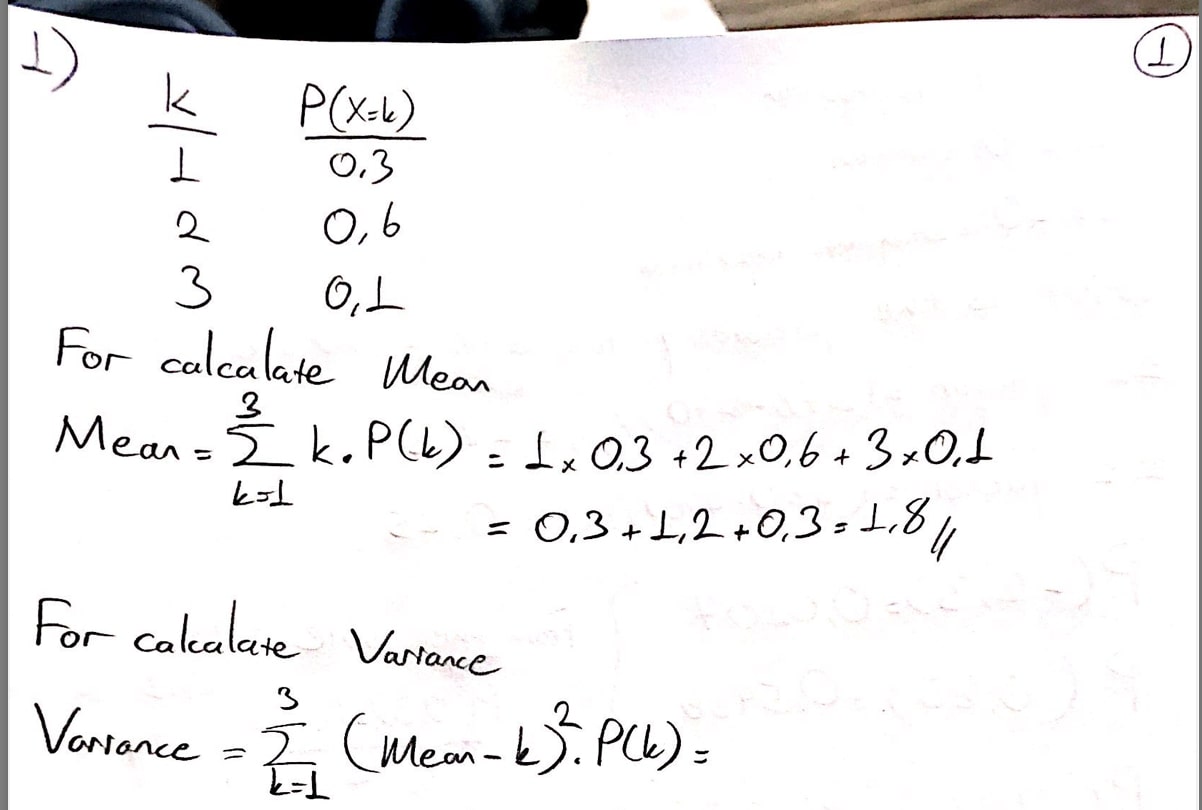 1) ①
k P(X=k)
1 0,3
2 0,6
3 0,1
For calculate Mean
Mean = 3∑k=1 k.P(k) = 1x0,3 +2x0,6 + 3x0,1
= 0,3 + 1,2 + 0,3 = 1,8 //
For calculate Variance
Variance = 3∑k=1 (Mean-k)². P(k) =